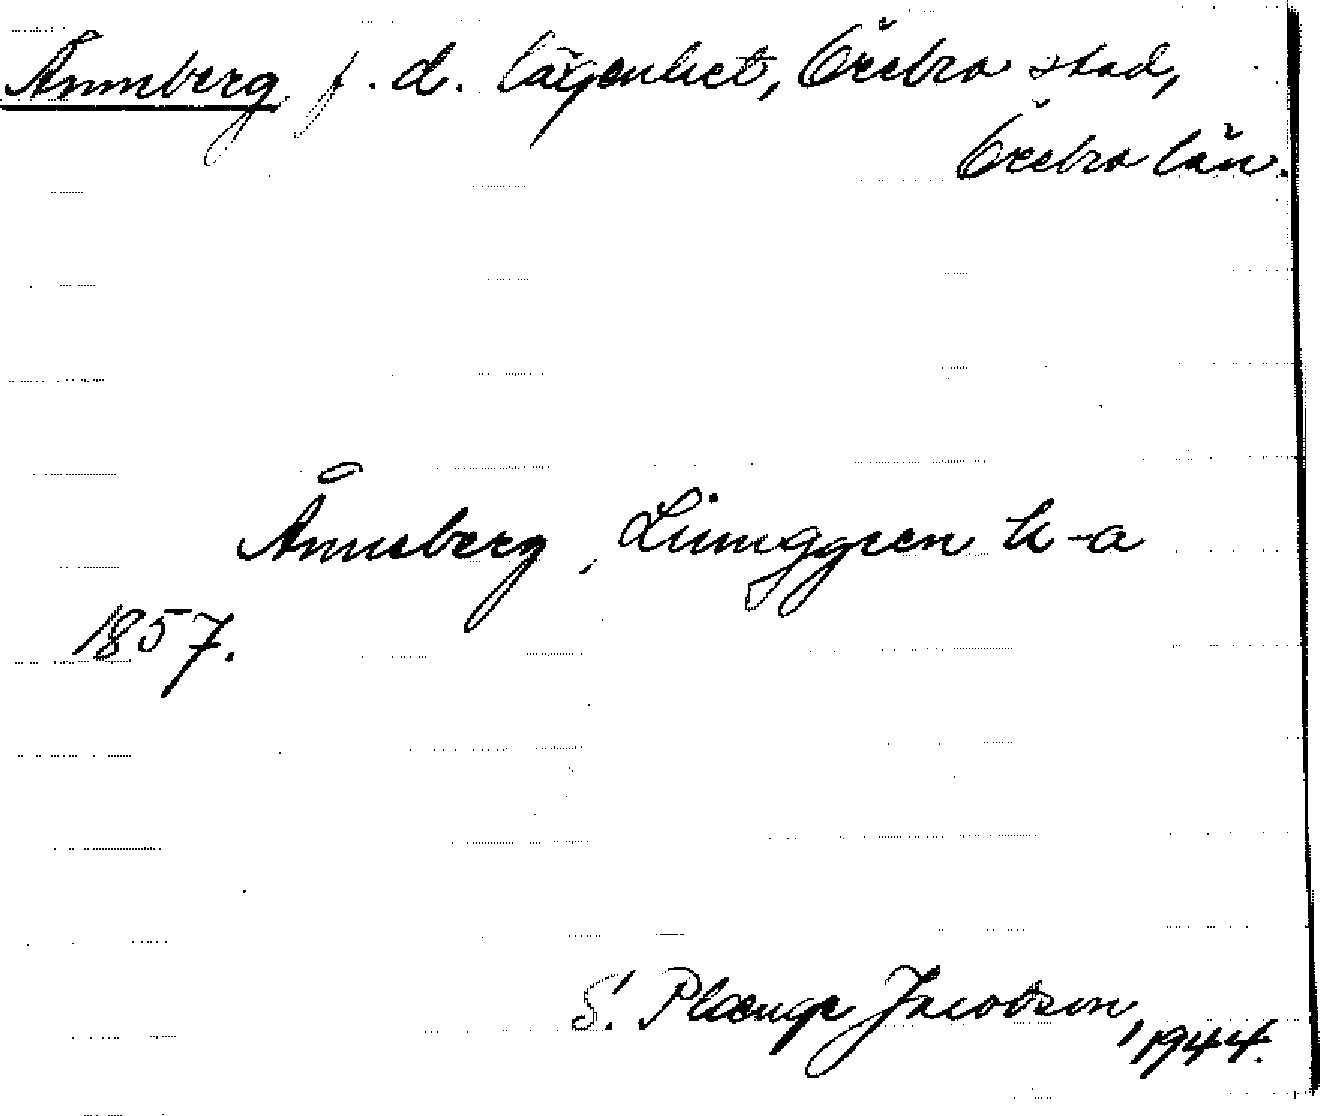 Ånneberg f. d. lägenhet, Örebro stad,
Örebro län.
Ånneberg, Ljunggren h-a
1857.
S. Plænge Jacobson, 1944.